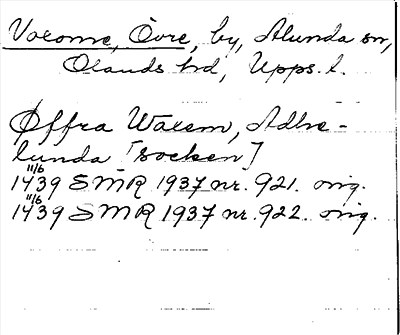 Vaxome, Övre, by, Alunda sn,
Olands hd, Upps. l.
Øffra Waxem, Adhe-
lunda [socken]
11/6
1439 SMR 1937 nr. 921. orig.
11/6
1439 SMR 1937 nr. 922. orig.